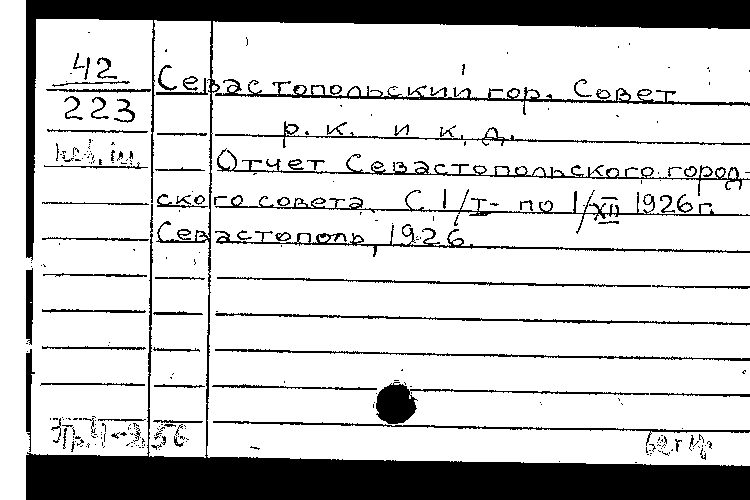 42
223
Севастопольский гор. Совет
р. к. и к. д.
Отчет Севастопольского город-
ского совета. С 1/I- по 1/XII 1926г.
Севастополь, 1926.